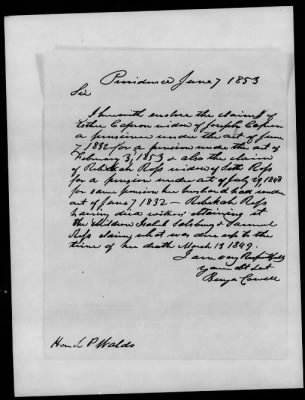 Providence June 7 1853
Sir
I herewith enclose the claim of
Esther Capron widow of Joseph Capron
a pensioner under the act of June
7, 1832 for a pension under the act of
February 3, 1853 & also the claim
of Rebekah Ross widow of Ross
for a pension under act of July 29, 1848
for same pension her husband had under
act of June 7 1832 — Rebekah Ross
having died without obtaining it
the children Salsbury & Samuel
Ross claim what was due up to the
time of her death March 13 1849.
I am very Respectfully
your Obt Svt
Benja Cowell
Hon L P Waldo